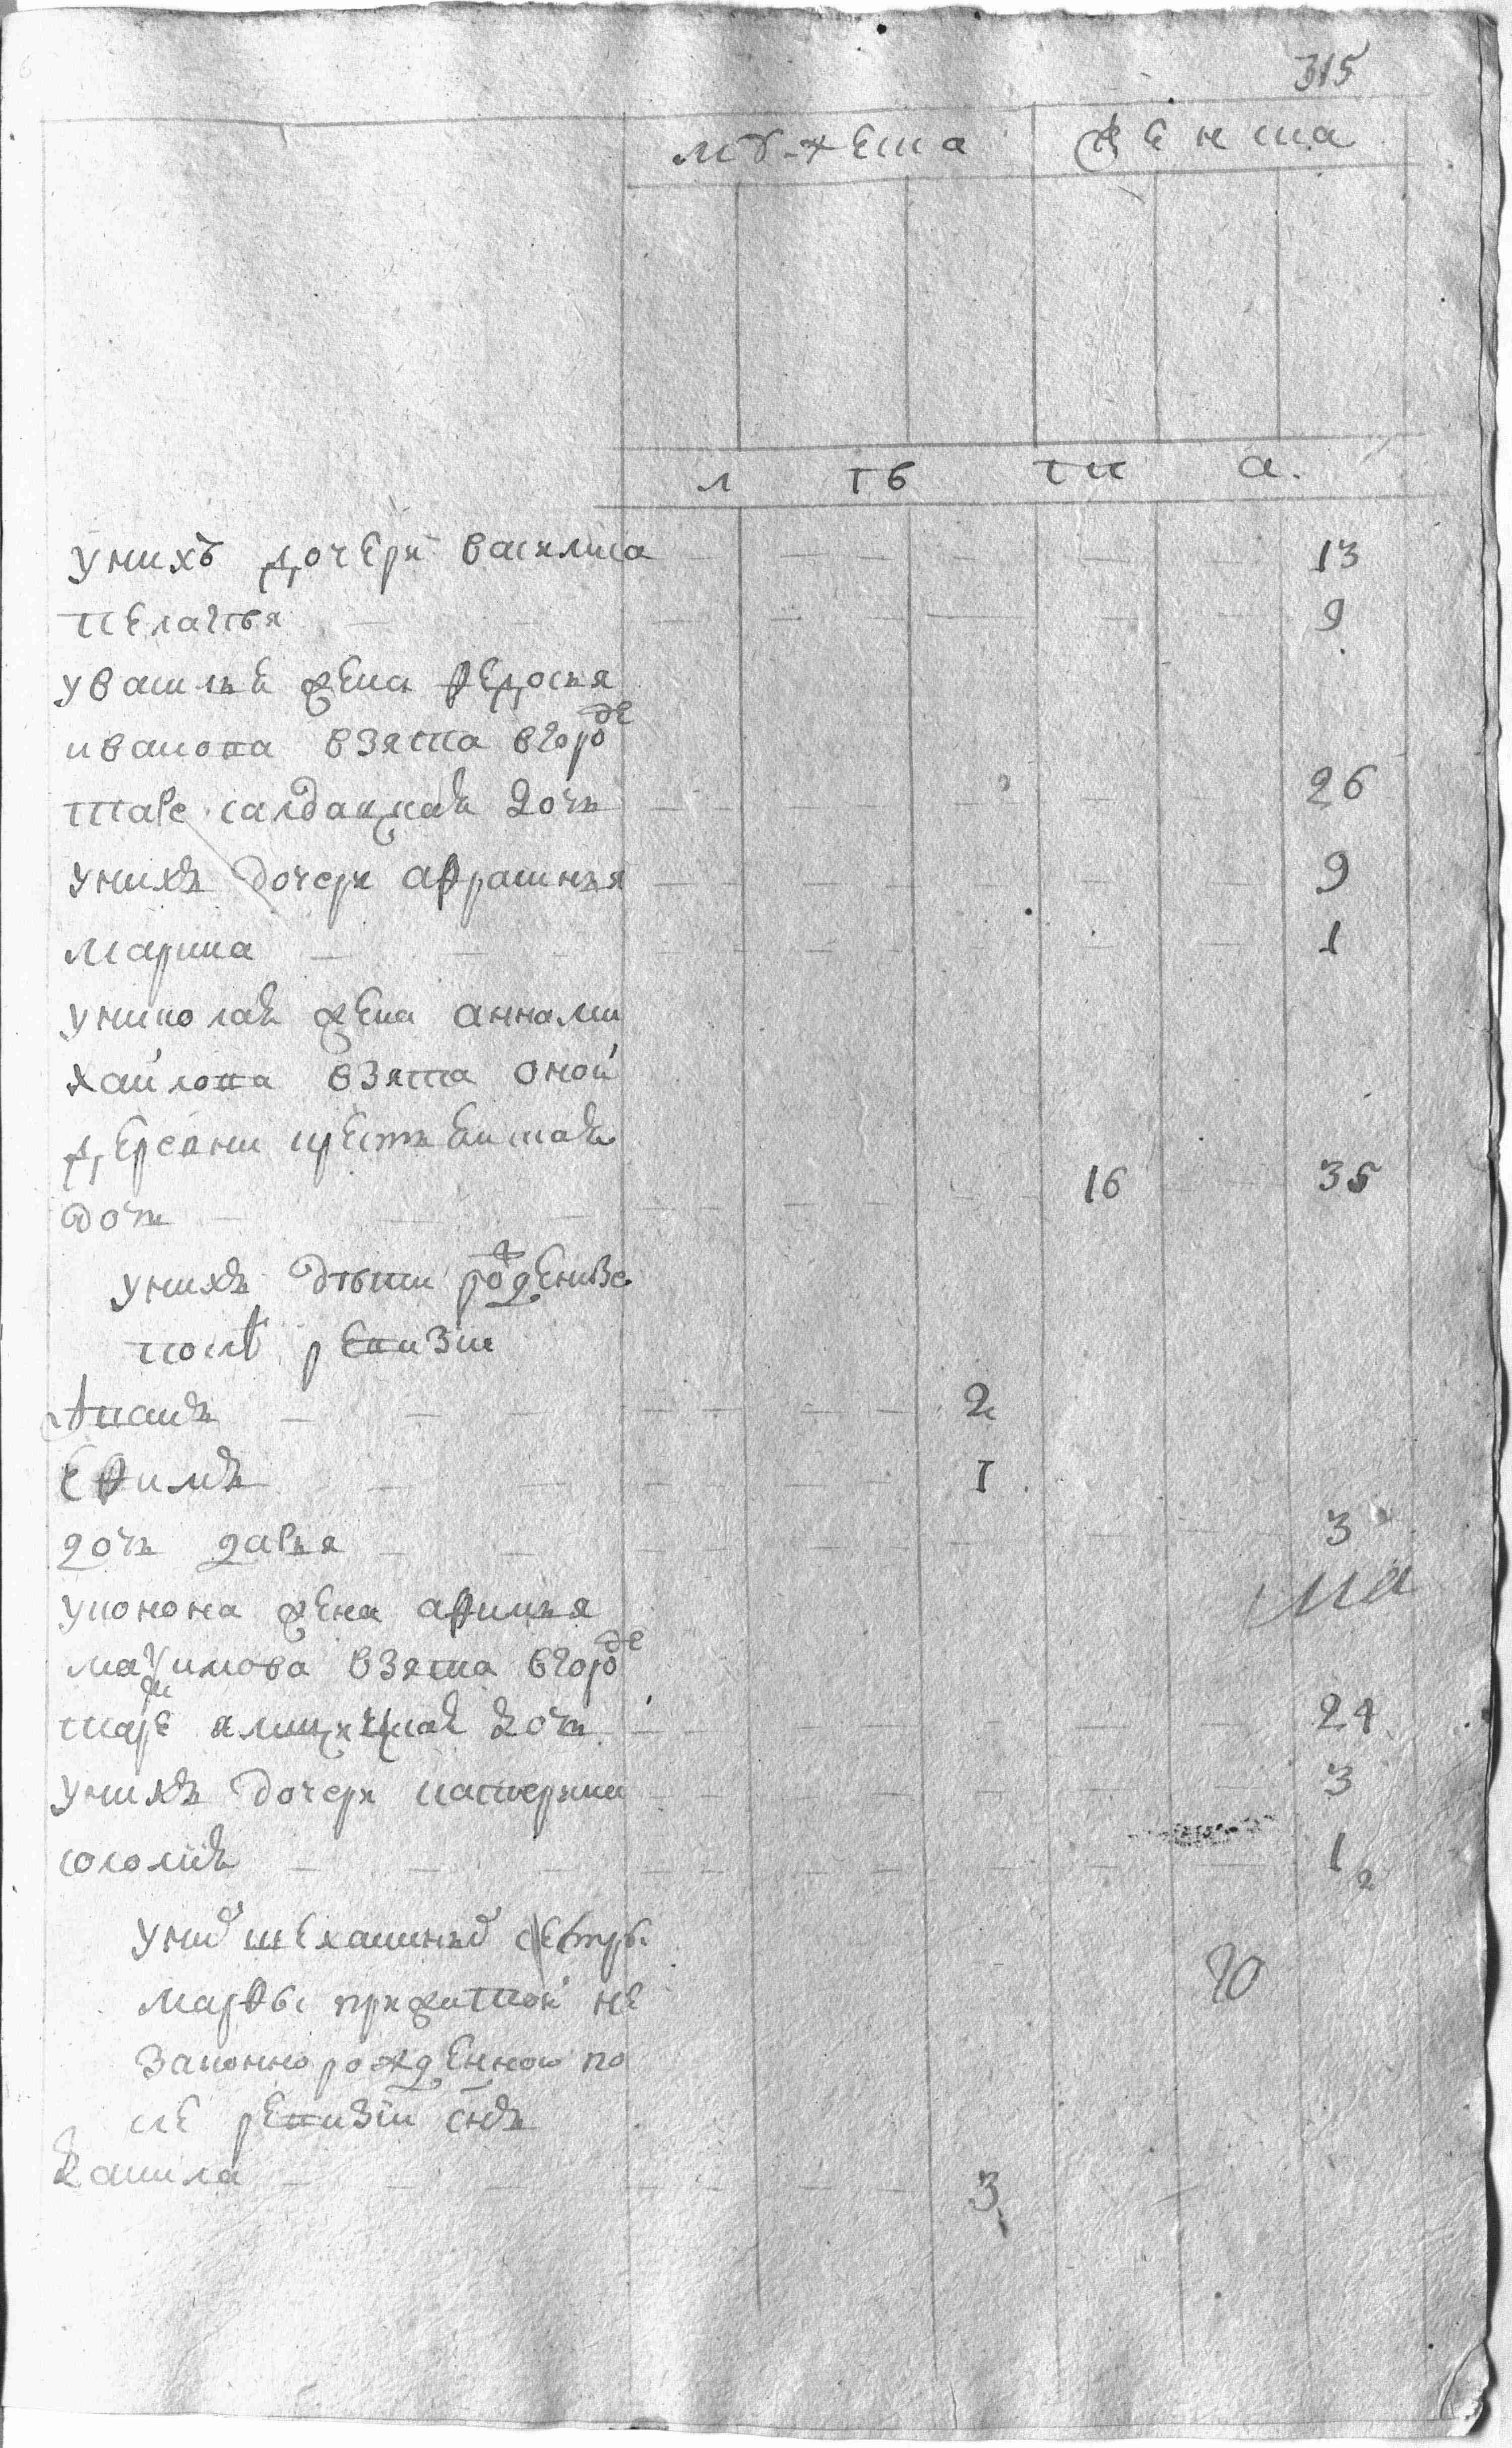 315
мужеска женска
л ѣ т а.
у нихъ дочери василиса 13
пелагѣя 9
у василья жена федосья
иванова взята в горо де
таре салдацкая дочь 26
у нихъ дочери афросинья 9
марина 1
у николая жена анна ми
хаилова взята оной
деревни крестьянская
дочь 16 35
у нихъ дѣти рожденые
послѣ ревизии
Иванъ 2
ефимъ 1
дочь дарья 3
у конона жена афимья
максимова взята в горо де
таре ямщицкая дочь 24
у нихъ дочери катерина 3
соломия 1 2
сестры
марфы прижитой не
законнорожденной по
сле ревизии снъ
данила 3